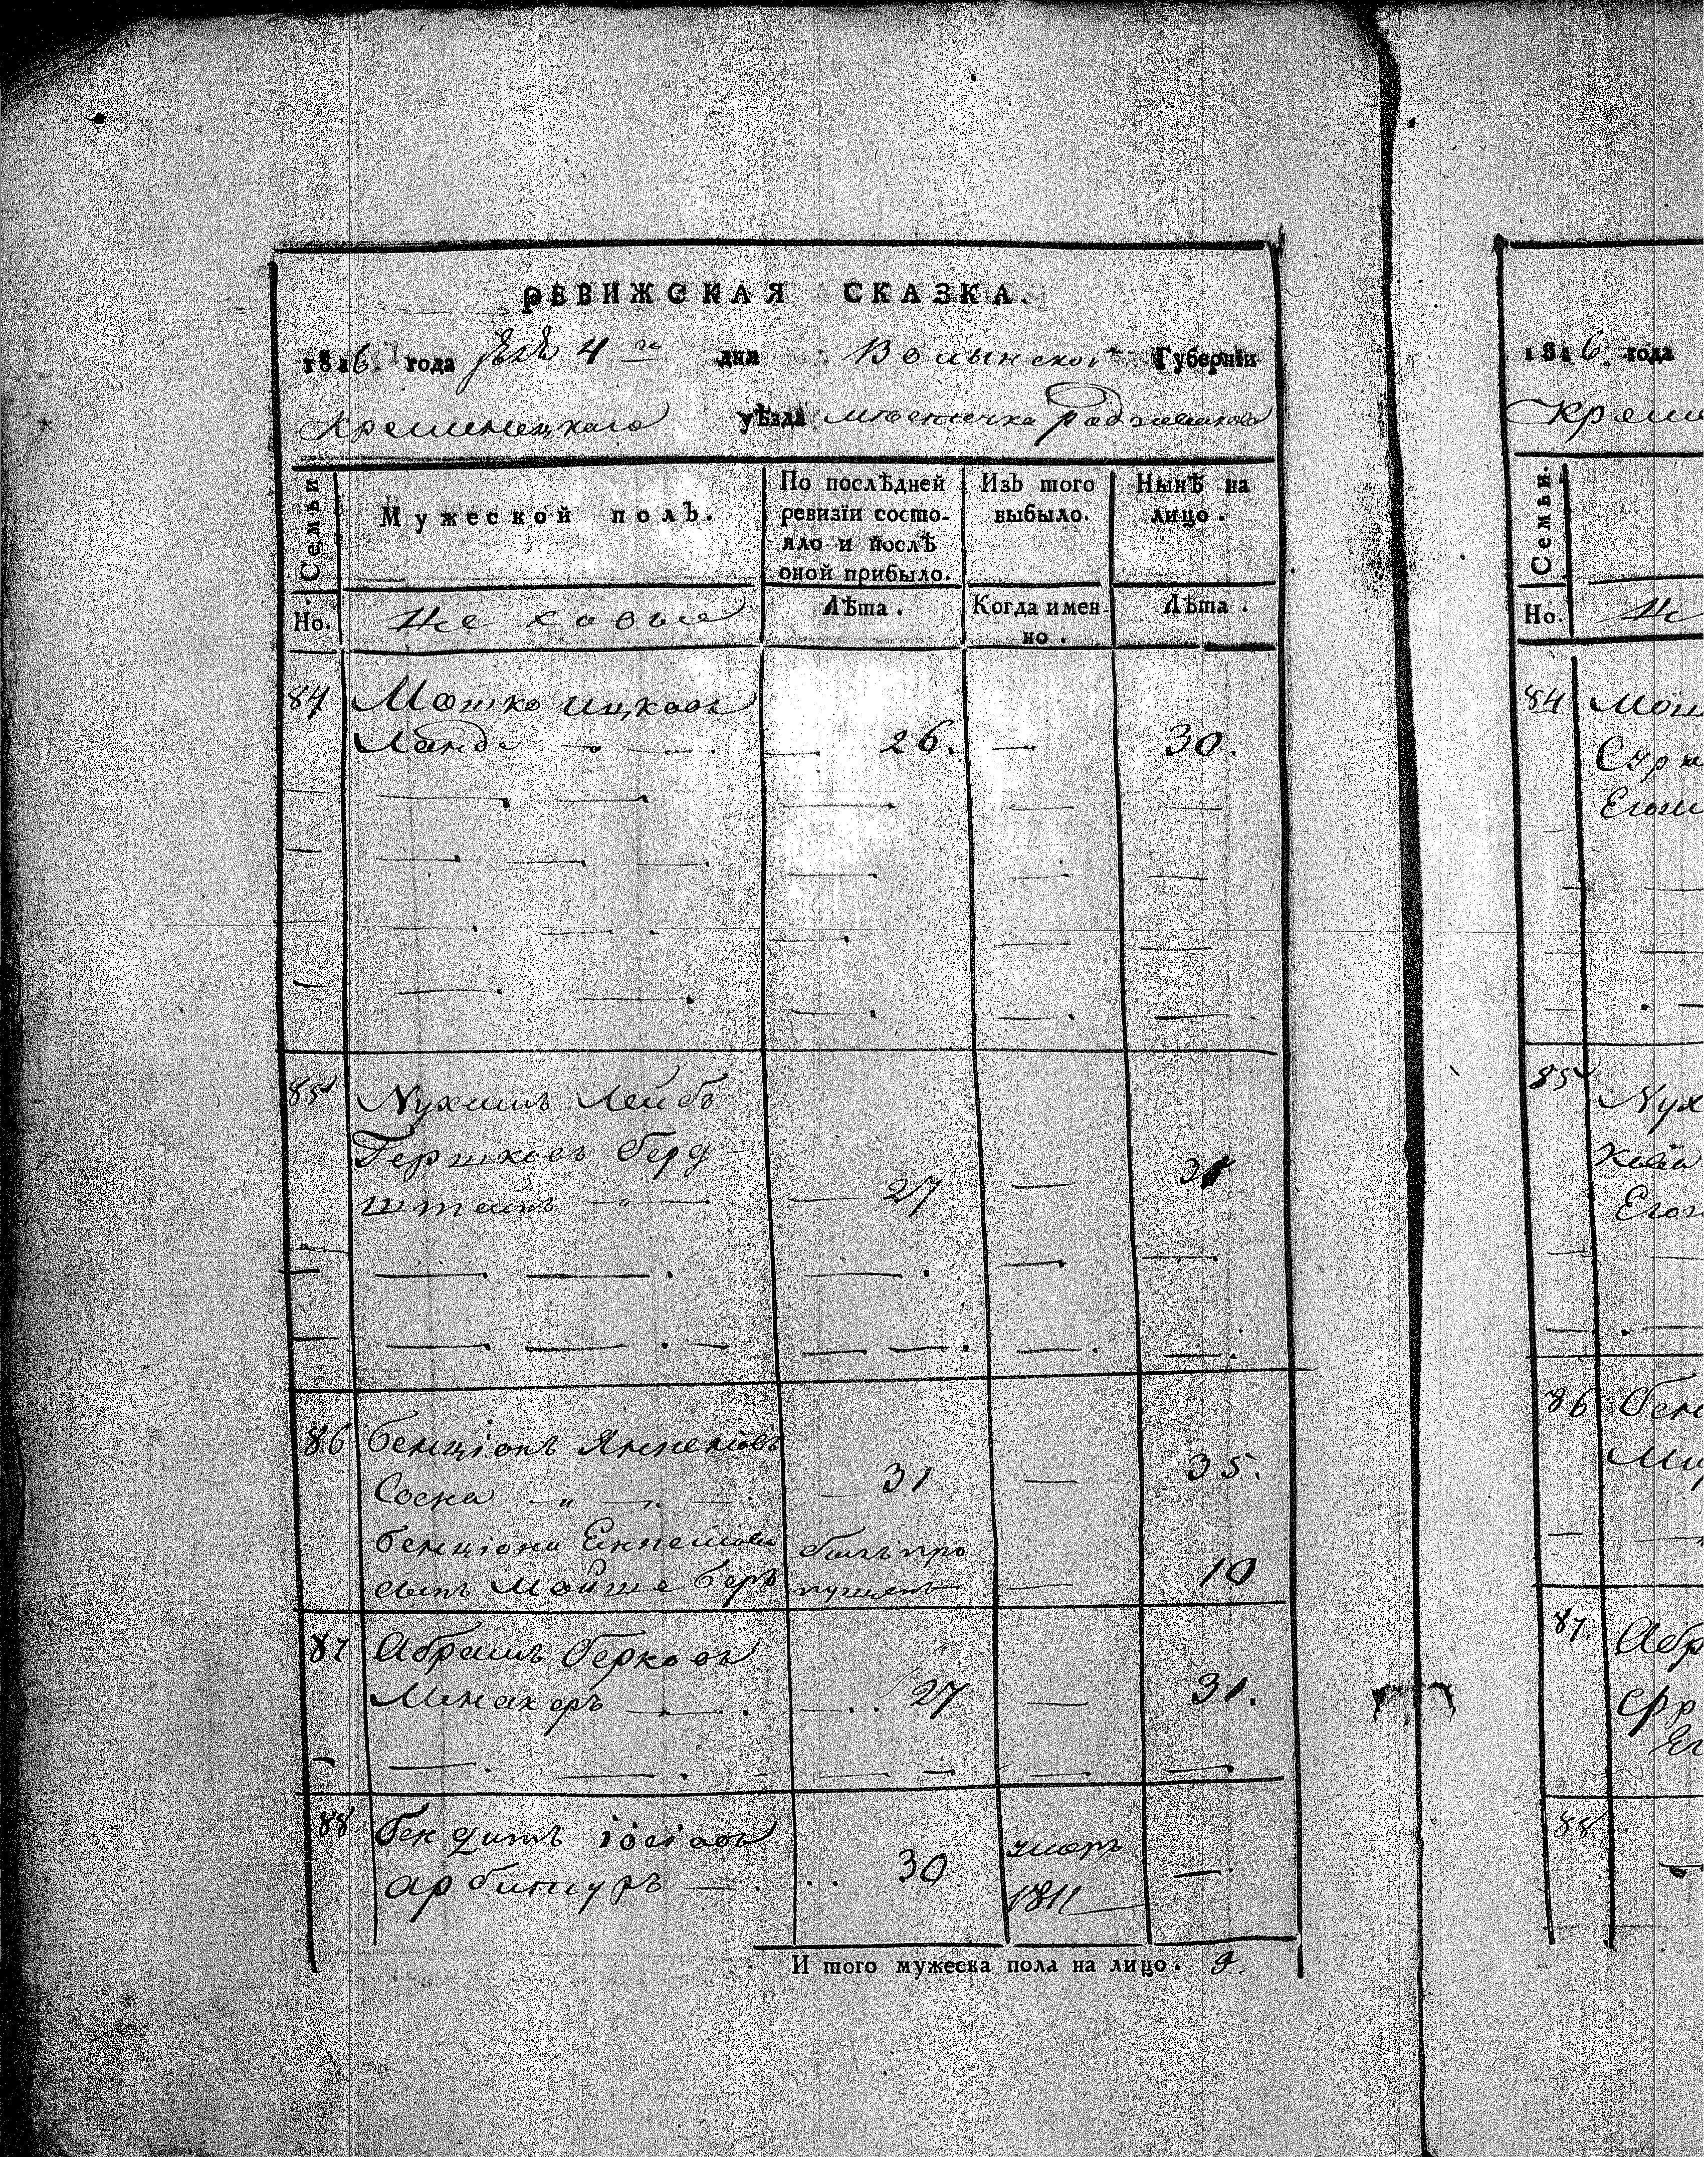 РЕВИЖСКАЯ СКАЗКА.
1816. года 4 го дня Волынской Губернїи
Кременецкаго уѣзда мѣстечка Радзивилова
Семьи
Мужеской полъ.
По послѣдней ревизїи состо-
яло и послѣ
оной прибыло.
Изъ того
выбыло.
Нынѣ на
лицо.
Но.
Лѣта.
Когда имен-
но.
Лѣта.
84 Мошко Ицковъ
Ланда 26. 30.
85 Нухимъ Лейбъ
Гершковъ Берд-
штейнъ 27 31
86 Бенціонъ Янкелiовъ
Соска 31 35.
Бенціона Енкелiова былъ про
сынъ Мойше Беръ пущенъ 10
87 Абрамъ Берковъ
Менакеръ 27 31.
88 Бендитъ іосіовъ умеръ
арбитуръ 30 1811
И того мужеска пола на лицо.
1816. года
Креме
Семьи.
Но.
84
Сура
Егош
85 Нух
Хаïа
Егог
86 Бен
87. Абр
Фр
Ег
88